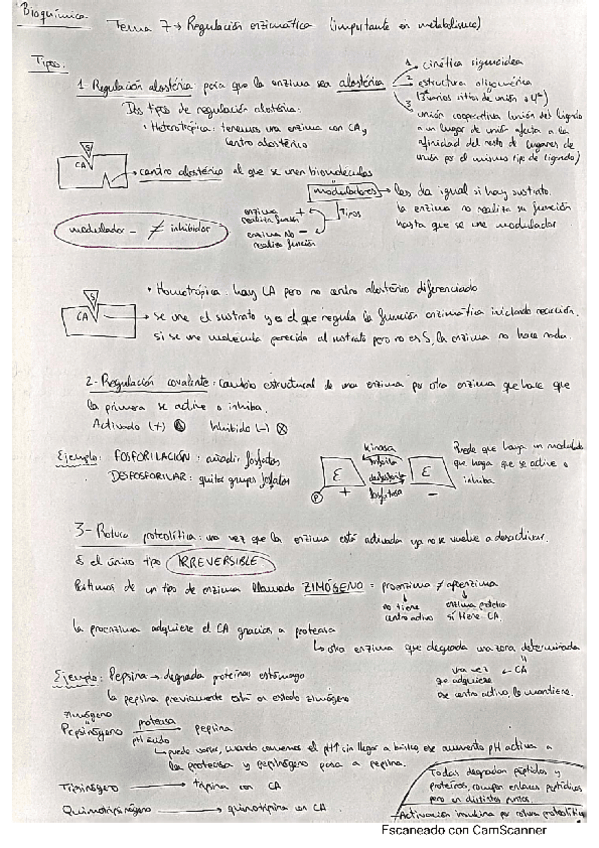 Bioquímica.
Tema 7 → Regulación enzimática (importante en metabolismo)
Tipos.
1. Regulación alostérica: para que la enzima sea alostérica
1 cinética sigmoidea
2 estructura oligomérica
3 (varios sitios de unión + 4ª)
unión cooperativa (unión del ligando
a un lugar de unión afecta a la
afinidad del resto de lugares de
unión por el mismo tipo de ligando)
Dos tipos de regulación alostérica.
· Heterotrópica: tenemos una enzima con CA y
centro alostérico
S
CA
→ centro alostérico al que se unen biomoléculas
moduladores → les da igual si hay sustrato.
la enzima no realiza su función
hasta que se une modulador
enzima realiza función +
enzima no realiza función -
tipos
modulador - ≠ inhibidor
• Homotrópica: hay CA pero no centro alostérico diferenciado
S
CA
→ se une el sustrato y es el que regula la función enzimática iniciando reacción.
si se une molécula parecida al sustrato pero no es S, la enzima no hace nada.
2- Regulación covalente: cambio estructural de una enzima por otra enzima que hace que
la primera se active o inhiba.
Activado (+) Inhibido (-)
Ejemplo: FOSFORILACIÓN: añadir fosfatos
DESFOSFORILAR: quitar grupos fosfatos
kinasa
fosfatasa
E E
P + -
Puede que haya un modulador
que haga que se active o
inhiba
3- Rotura proteolítica: una vez que la enzima está activada ya no se vuelve a desactivar.
Es el único tipo IRREVERSIBLE
Partimos de un tipo de enzima llamado ZIMÓGENO = proenzima ≠ apoenzima
no tiene
centro activo
enzima
si tiene CA
la proenzima adquiere el CA gracias a proteasa
↳ otra enzima que degrada una zona determinada
CA
una vez
que adquiere
ese centro activo, lo mantiene.
Ejemplo: Pepsina → degrada proteínas estómago
la pepsina previamente está en estado zimógeno
zimógeno
Pepsinógeno proteasa → pepsina
pH ácido
↳ puede variar, cuando comemos el pH ↑ sin llegar a básico, ese aumento pH activa a
las proteasas y pepsinógeno pasa a pepsina.
Tripsinógeno → tripsina con CA
Quimotripsinógeno → quimotripsina con CA.
Todas degradan péptidos y
proteínas, rompen enlaces peptídicos
pero en distintos puntos.
- Activación insulina por rotura proteolítica
Escaneado con CamScanner